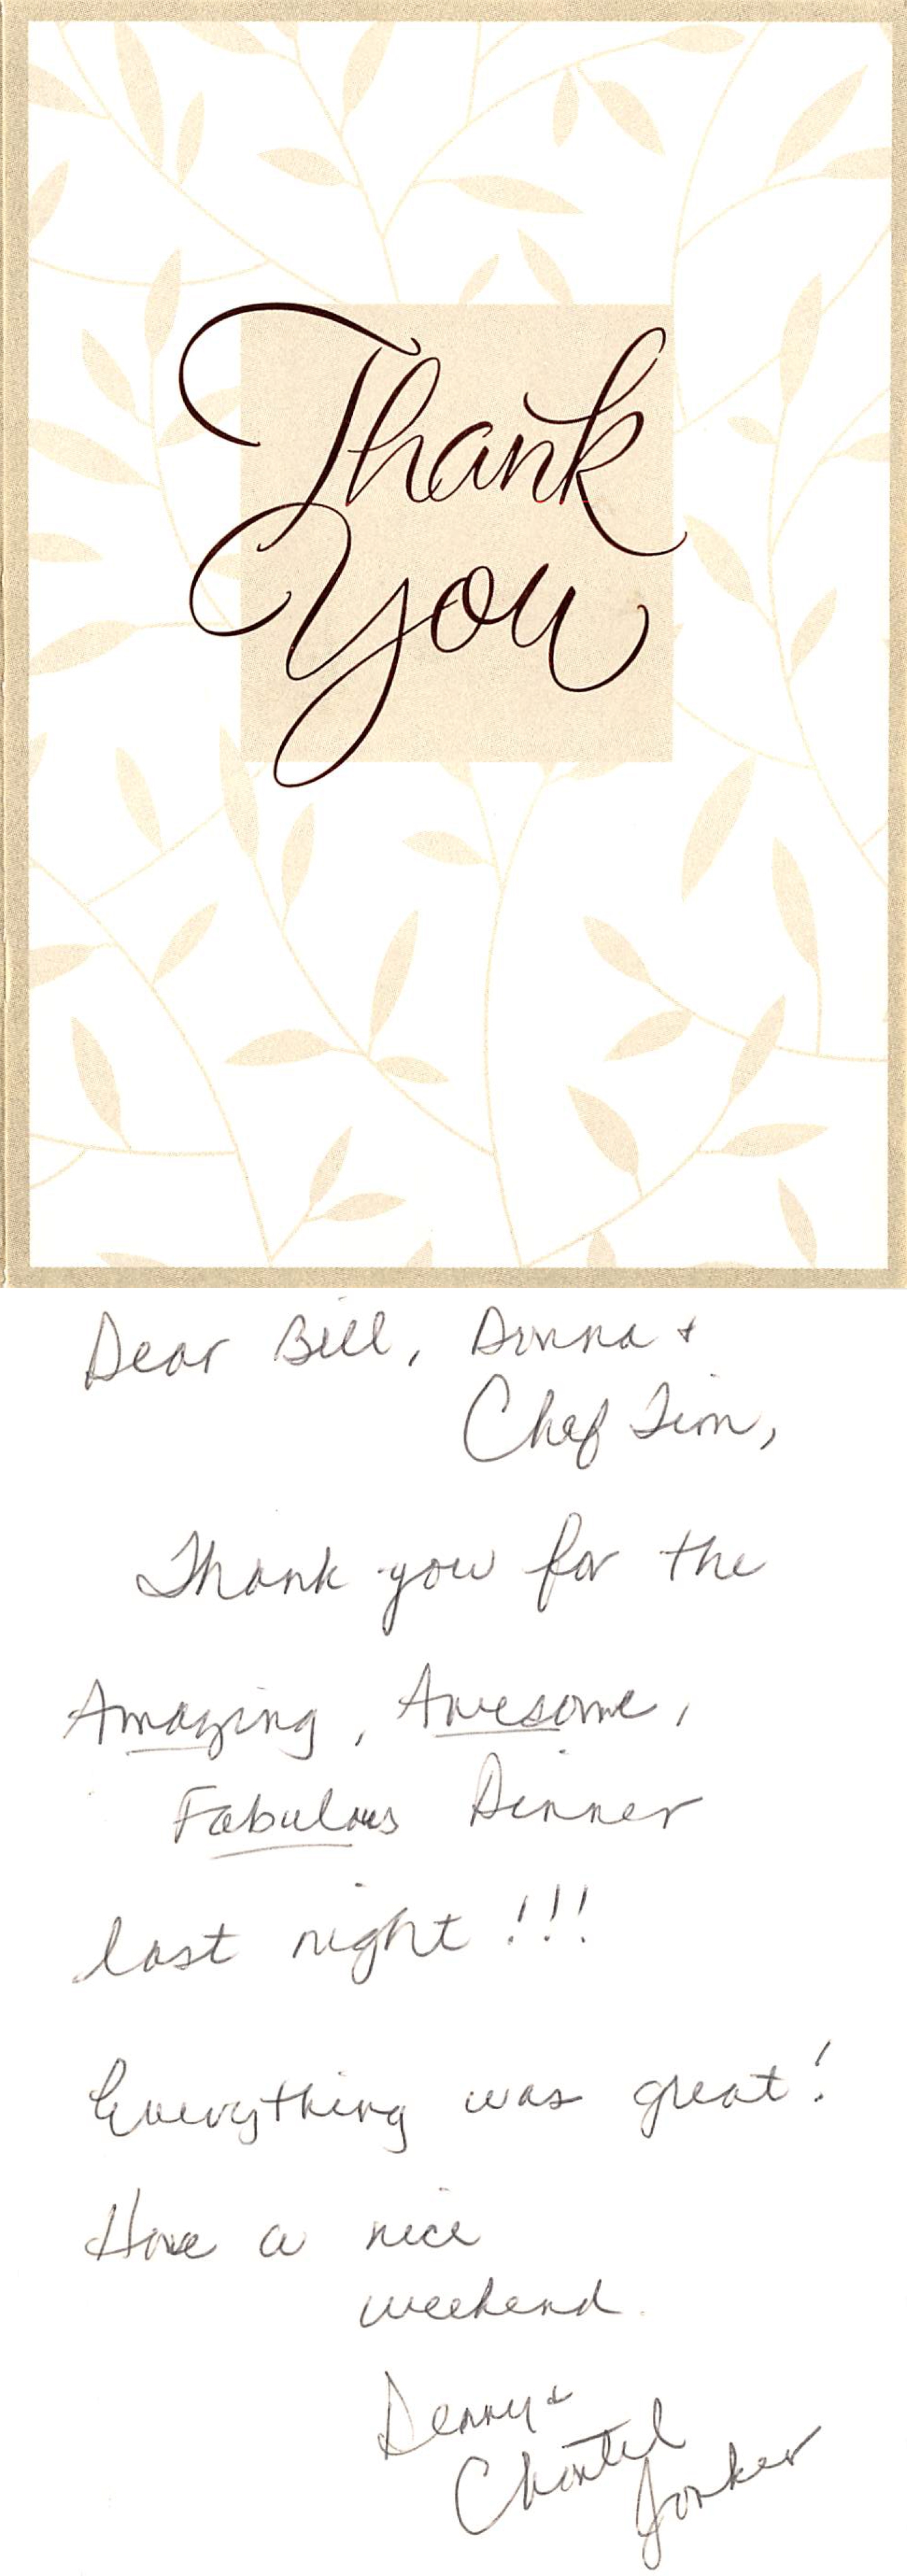 Thank
You
Dear Bill, Donna +
Chef Tim,
Thank you for the
Amazing, Awesome,
Fabulous Dinner
last night!!!
Everything was great!
Have a nice
weekend.
Denny +
Chantel
Jonker